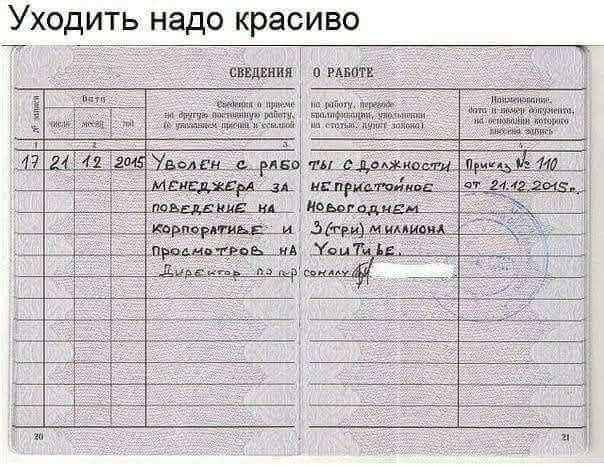 Уходить надо красиво
СВЕДЕНИЯ О РАБОТЕ
№ записи
Дата
число месяц год
Сведения о приеме на работу, переводе
на другую постоянную работу, квалификации, увольнении
(с указанием причин и ссылкой на статью, пункт закона)
Наименование,
дата и номер документа,
на основании которого
внесена запись
1 2 3 4
17 21 12 2015 Уволен с работы с должности Приказ № 110
менеджера за непристойное от 21.12.2015г.
поведение на новогоднем
корпоративе и 3(три) миллиона
просмотров на YouTube.
Директор по персоналу
20 21